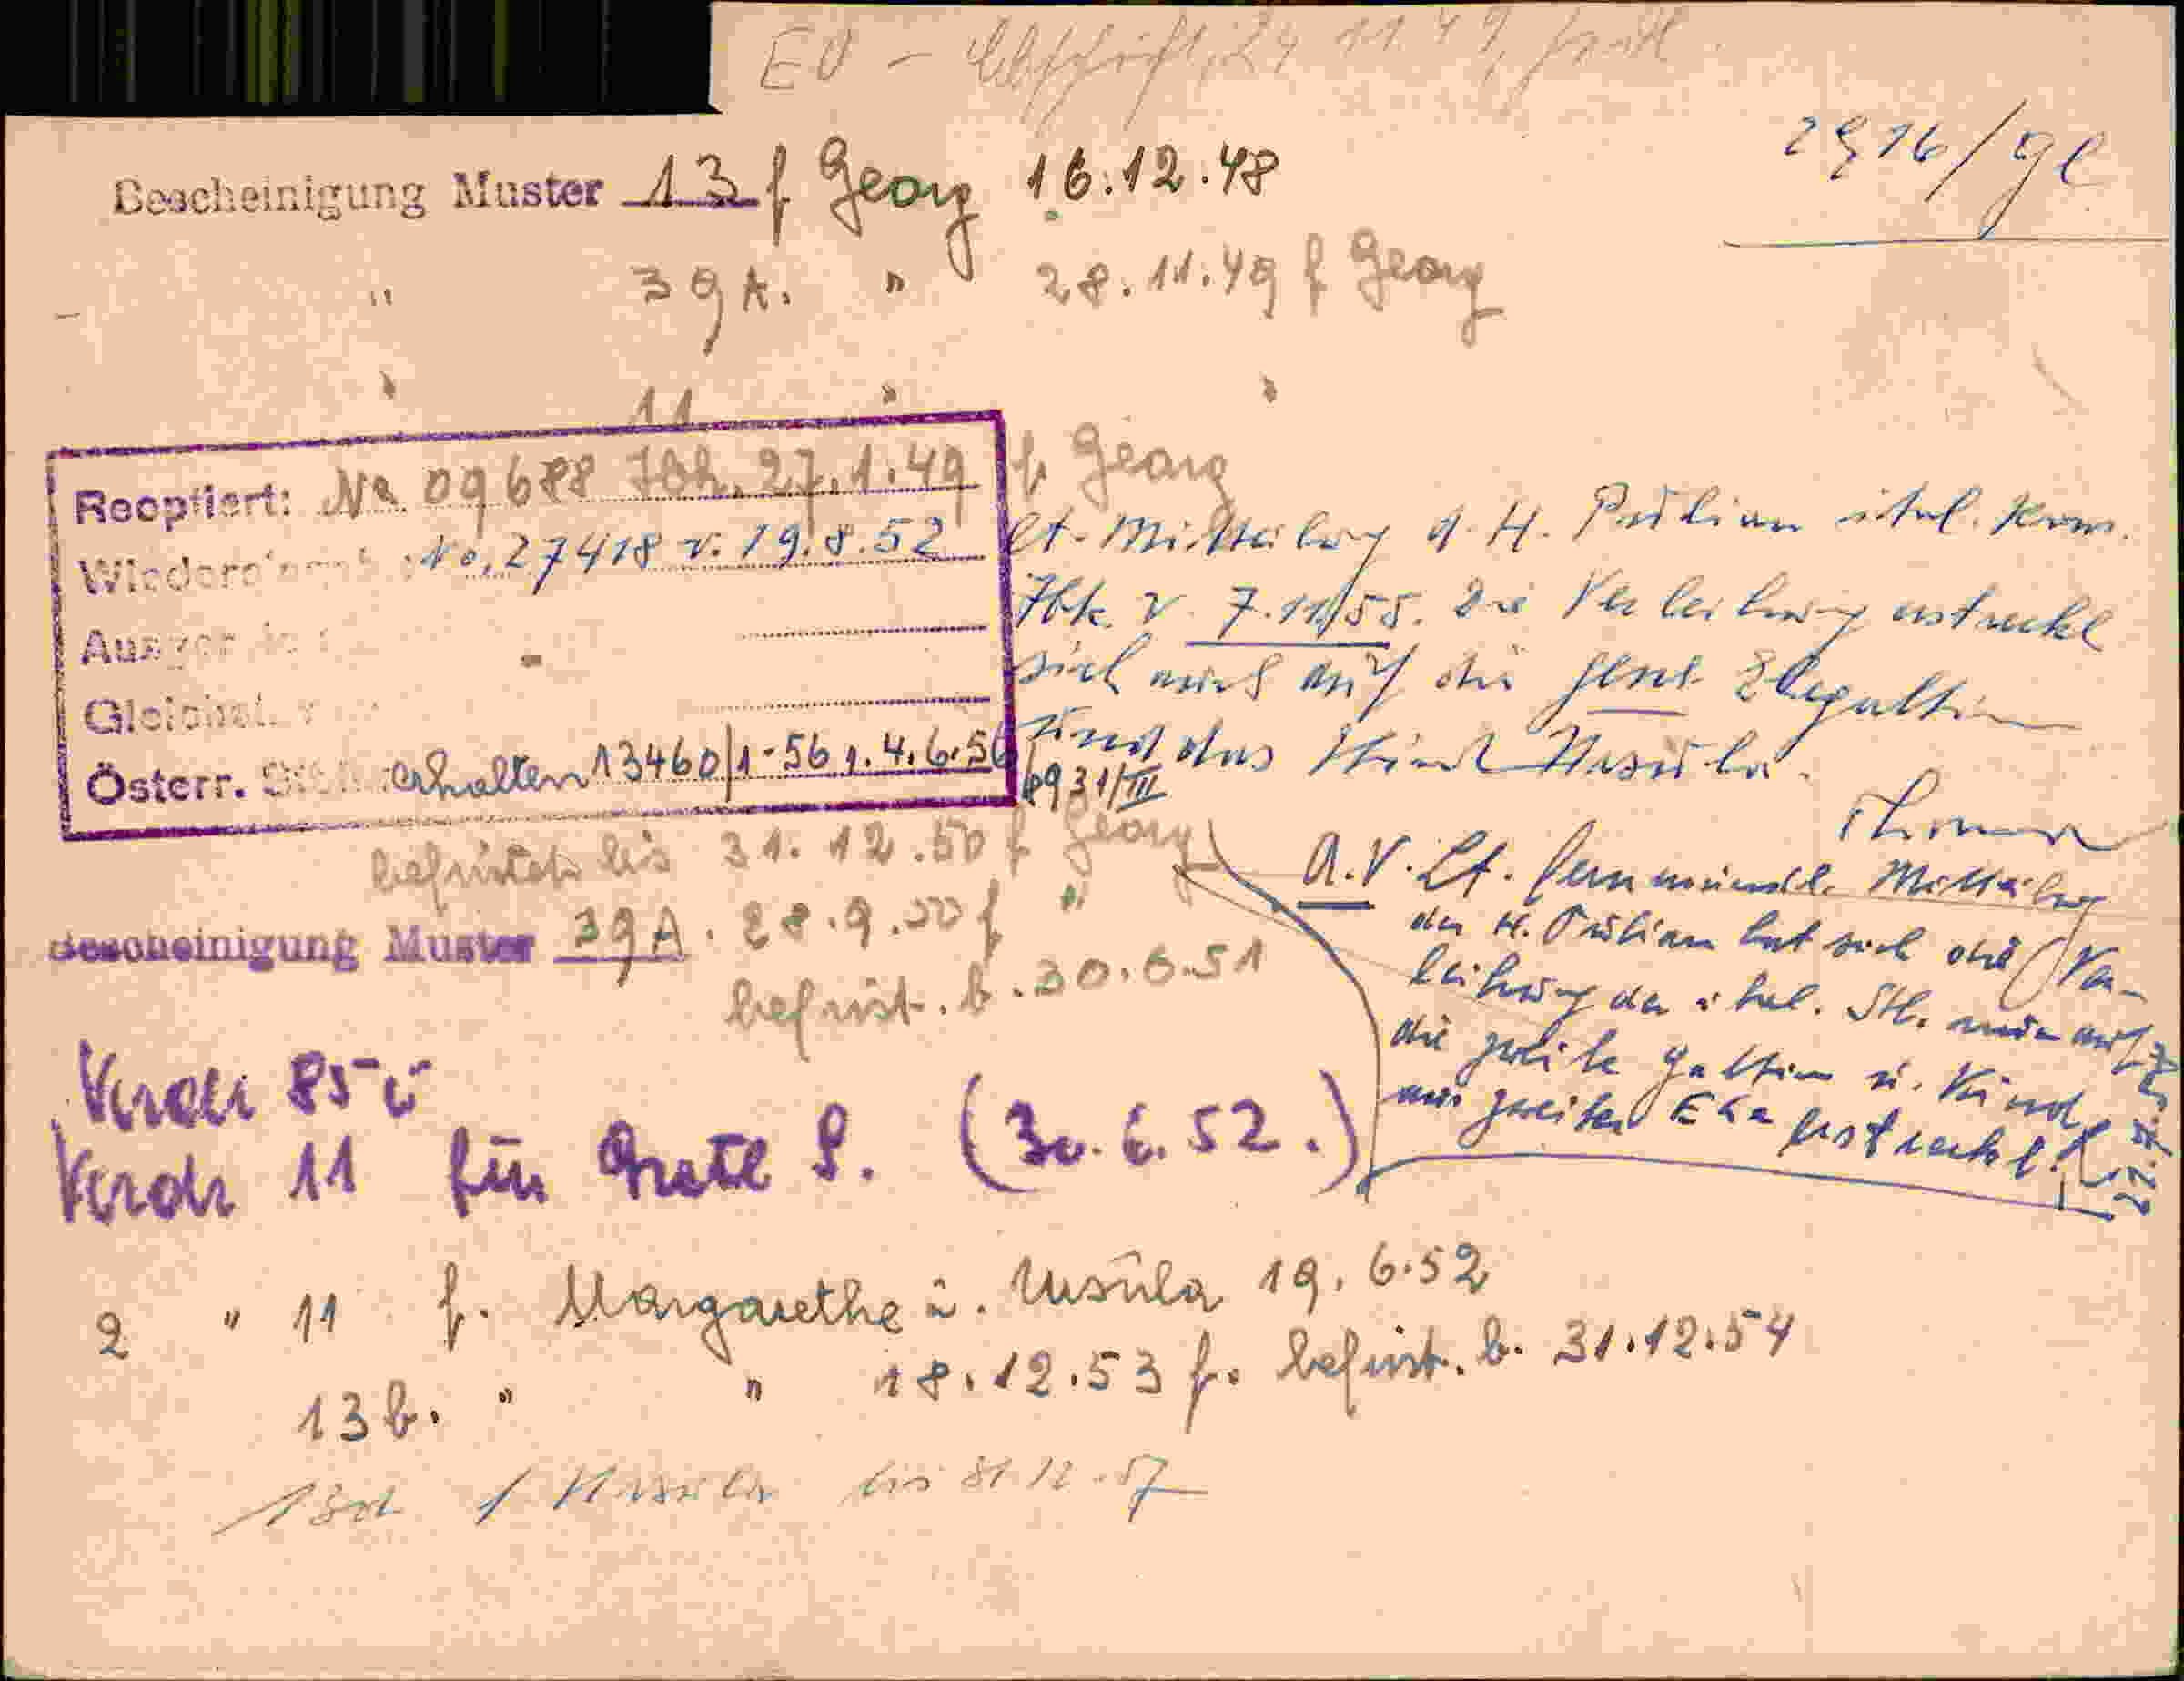 EO - Abschrift, 24 11. 49,
2916/ge
Bescheinigung Muster 13 f Georg 16.12.48
" 39 A. " 28.11.49 f Georg
" 11 " "
Reoptiert: No 09688 Ibk. 27.1.49 f. Georg
No. 27418 v. 19.8.52
Österr. erhalten 13460/1-56 v. 4.6.56
lt. Mitteilung d. H. Pulian ital. Kons.
Ibk. v. 7.11/55. Die Verleihung erstreckt
sich auch auf die gesch. Ehegattin
und das Kind Ursula.
befristet bis 31.12.50 f Georg
Bescheinigung Muster 39 A. 28.9.50 f "
befrist. b. 30.6.51
A.V. Lt. fernmündl. Mitteilung
des H. Pulian hat sich die Ver-
leihung der ital. Stb. nur auf
die zweite Gattin u. Kind
aus zweiter Ehe erstreckt.
Verdr 85
Verdr 11 für Grete P. (30.6.52.)
2 " 11 f. Margarethe u. Ursula 19.6.52
13 b. " " 18.12.53 f. befrist. b. 31.12.54
f Ursula bis 31.12.57